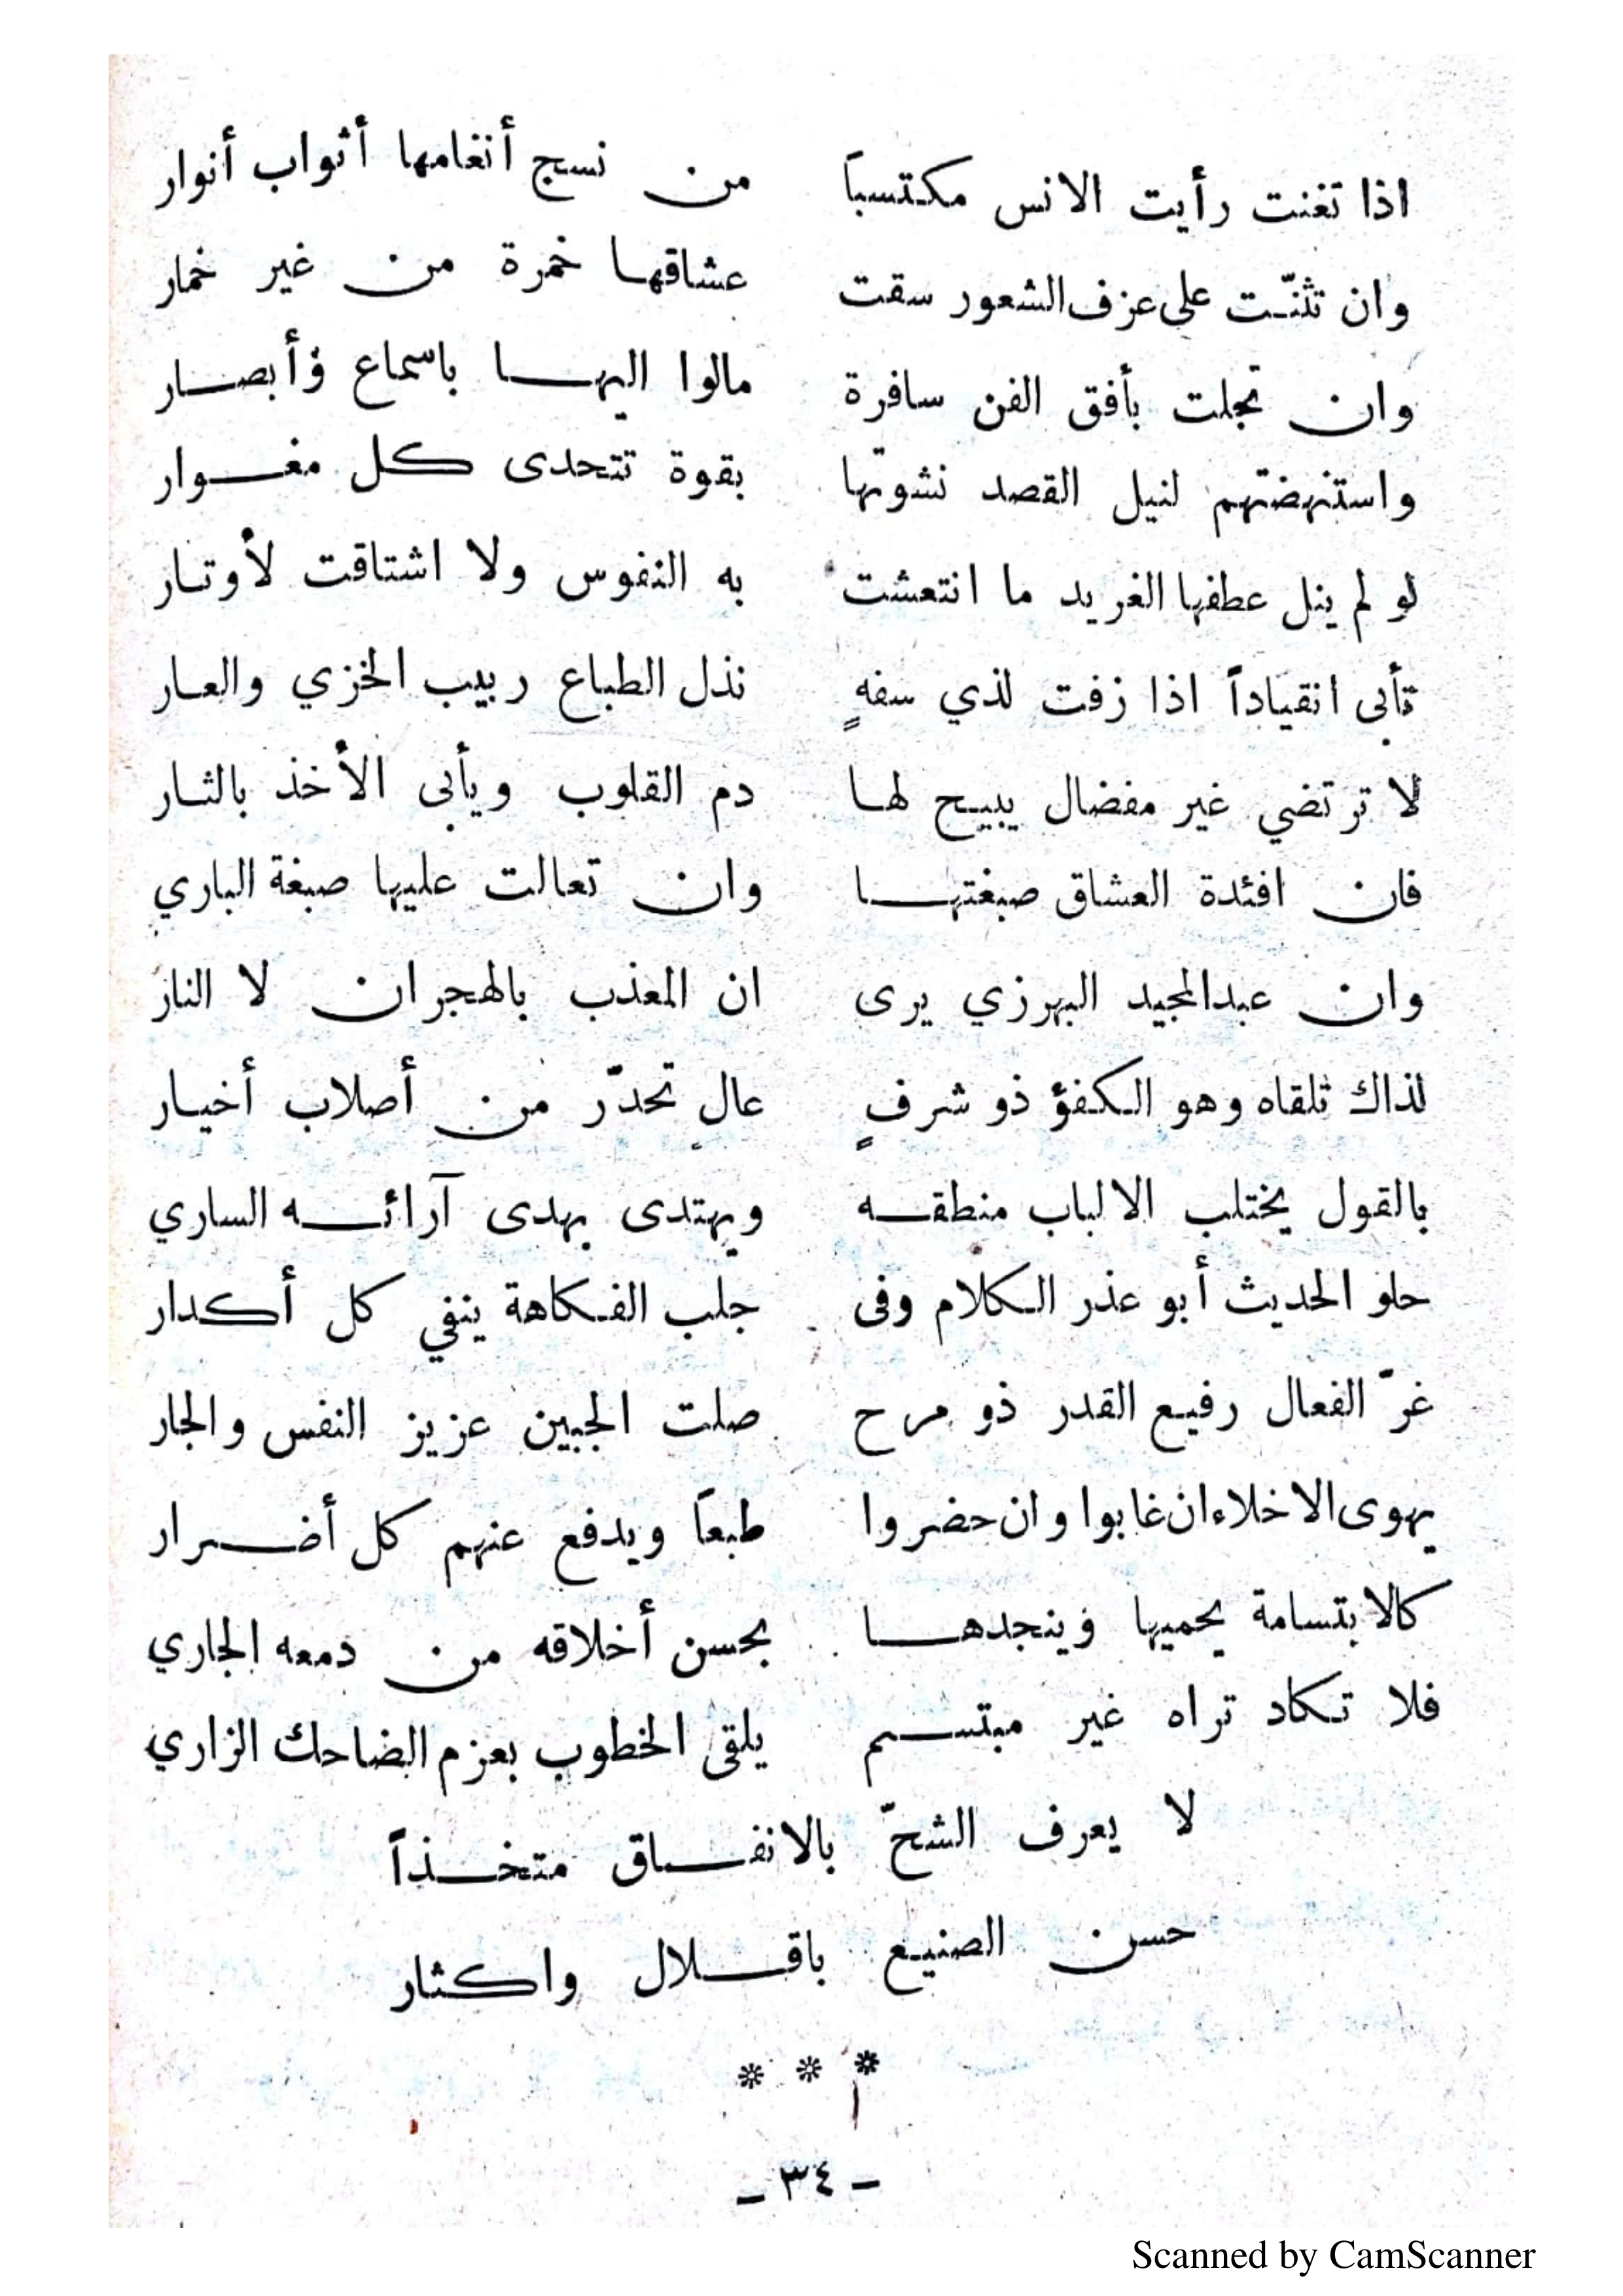 اذا تغنت رأيت الانس مكتسباً من نسج أنغامها أثواب أنوار
وان تثنّت على عزف الشعور سقت عشاقها خمرة من غير خمار
وان تجلت بأفق الفن سافرة مالوا اليها باسماع وأبصار
واستنهضتهم لنيل القصد نشوتها بقوة تتحدى كل مغوار
لو لم ينل عطفها الغريد ما انتعشت به النفوس ولا اشتاقت لأوتار
تأبى انقياداً اذا زفت لذي سفهٍ نذل الطباع ربيب الخزي والعار
لا ترتضي غير مفضال يبيح لها دم القلوب ويأبى الأخذ بالثار
فان افئدة العشاق صبغتها وان تعالت عليها صبغة الباري
وان عبدالمجيد البهرزي يرى ان المعذب بالهجران لا النار
لذاك تلقاه وهو الكفؤ ذو شرفٍ عالٍ تحدّر من أصلاب أخيار
بالقول يختلب الالباب منطقه ويهتدى بهدى آرائه الساري
حلو الحديث أبو عذر الكلام وفى جلب الفكاهة ينفي كل أكدار
غرّ الفعال رفيع القدر ذو مرح صلت الجبين عزيز النفس والجار
يهوى الاخلاء ان غابوا وان حضروا طبعاً ويدفع عنهم كل أضرار
كالابتسامة يحميها وينجدها بحسن أخلاقه من دمعه الجاري
فلا تكاد تراه غير مبتسم يلقى الخطوب بعزم الضاحك الزاري
لا يعرف الشحّ بالانفاق متخذاً
حسن الصنيع باقلال واكثار
* * *
- ٣٤ -
Scanned by CamScanner